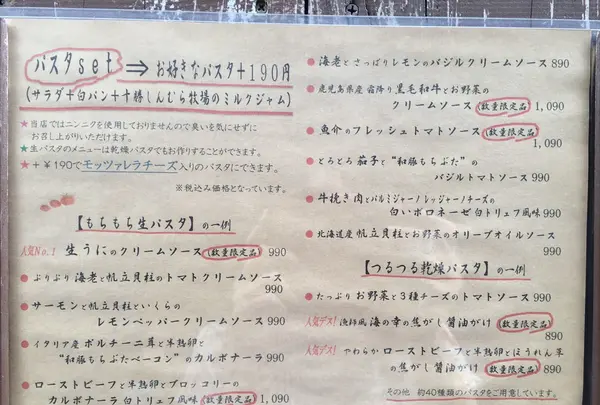 パスタset ⇒ お好きなパスタ+190円
(サラダ+白パン+十勝しんむら牧場のミルクジャム)
★当店ではニンニクを使用しておりませんので臭いを気にせずに
お召し上がりいただけます。
★生パスタのメニューは乾燥パスタでもお作りすることができます。
★+¥190でモッツァレラチーズ入りのパスタにできます。
※税込み価格となっています。
【もちもち生パスタ】の一例
人気No.1 生うにのクリームソース(数量限定品) 990
● ぷりぷり海老と帆立貝柱のトマトクリームソース
990
● サーモンと帆立貝柱といくらの
レモンペッパークリームソース 990
● イタリア産ポルチーニ茸と半熟卵と
"和豚もちぶたベーコン"のカルボナーラ 990
● ローストビーフと半熟卵とブロッコリーの
カルボナーラ 白トリュフ風味(数量限定品) 1,090
● 海老とさっぱりレモンのバジルクリームソース 890
● 鹿児島県産霜降り黒毛和牛とお野菜の
クリームソース(数量限定品) 1,090
● 魚介のフレッシュトマトソース(数量限定品)
1,090
● とろとろ茄子と"和豚もちぶた"の
バジルトマトソース 990
● 牛挽き肉とパルミジャーノレッジャーノチーズの
白いボロネーゼ白トリュフ風味 990
● 北海道産帆立貝柱とお野菜のオリーブオイルソース
990
【つるつる乾燥パスタ】の一例
● たっぷりお野菜と3種チーズのトマトソース 990
人気デス! 漁師風海の幸の焦がし醤油がけ(数量限定品)
890
人気デス! やわらかローストビーフと半熟卵とほうれん草
の焦がし醤油がけ(数量限定品) 890
その他 約40種類のパスタをご用意しています。